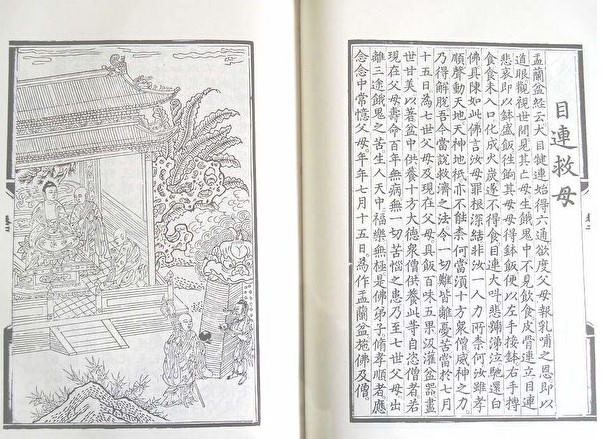 目連救母
盂蘭盆經云大目犍連始得六通欲度父母報乳哺之恩即以
道眼觀視世間見其亡母生餓鬼中不見飲食皮骨連立目連
悲哀即以鉢盛飯往餉其母母得鉢飯便以左手接鉢右手摶
食食未入口化成火炭遂不得食目連大叫悲號涕泣馳還白
佛具陳如此佛言汝母罪根深結非汝一人力所柰何汝雖孝
順聲動天地天神地祇亦不能柰何當須十方衆僧威神之力
乃得解脫吾今當說救濟之法令一切難皆離憂苦當於七月
十五日為七世父母及現在父母具飯百味五果汲灌盆器盡
世甘美以著盆中供養十方大德衆僧供養此等自恣僧者若
現在父母壽命百年無病無一切苦惱之患乃至七世父母出
離三途餓鬼之苦生人天中福樂無極是佛弟子脩孝順者應
念念中常憶父母。年年七月十五日。為作盂蘭盆施佛及僧。